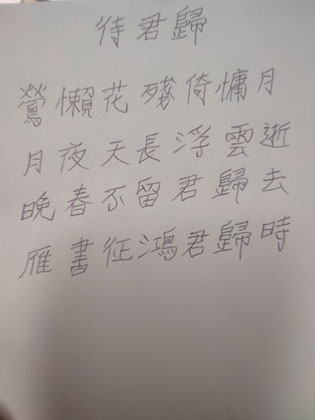 待君歸
鶯懶花殘倚慵月
月夜天長浮雲逝
晚春不留君歸去
雁書征鴻君歸時